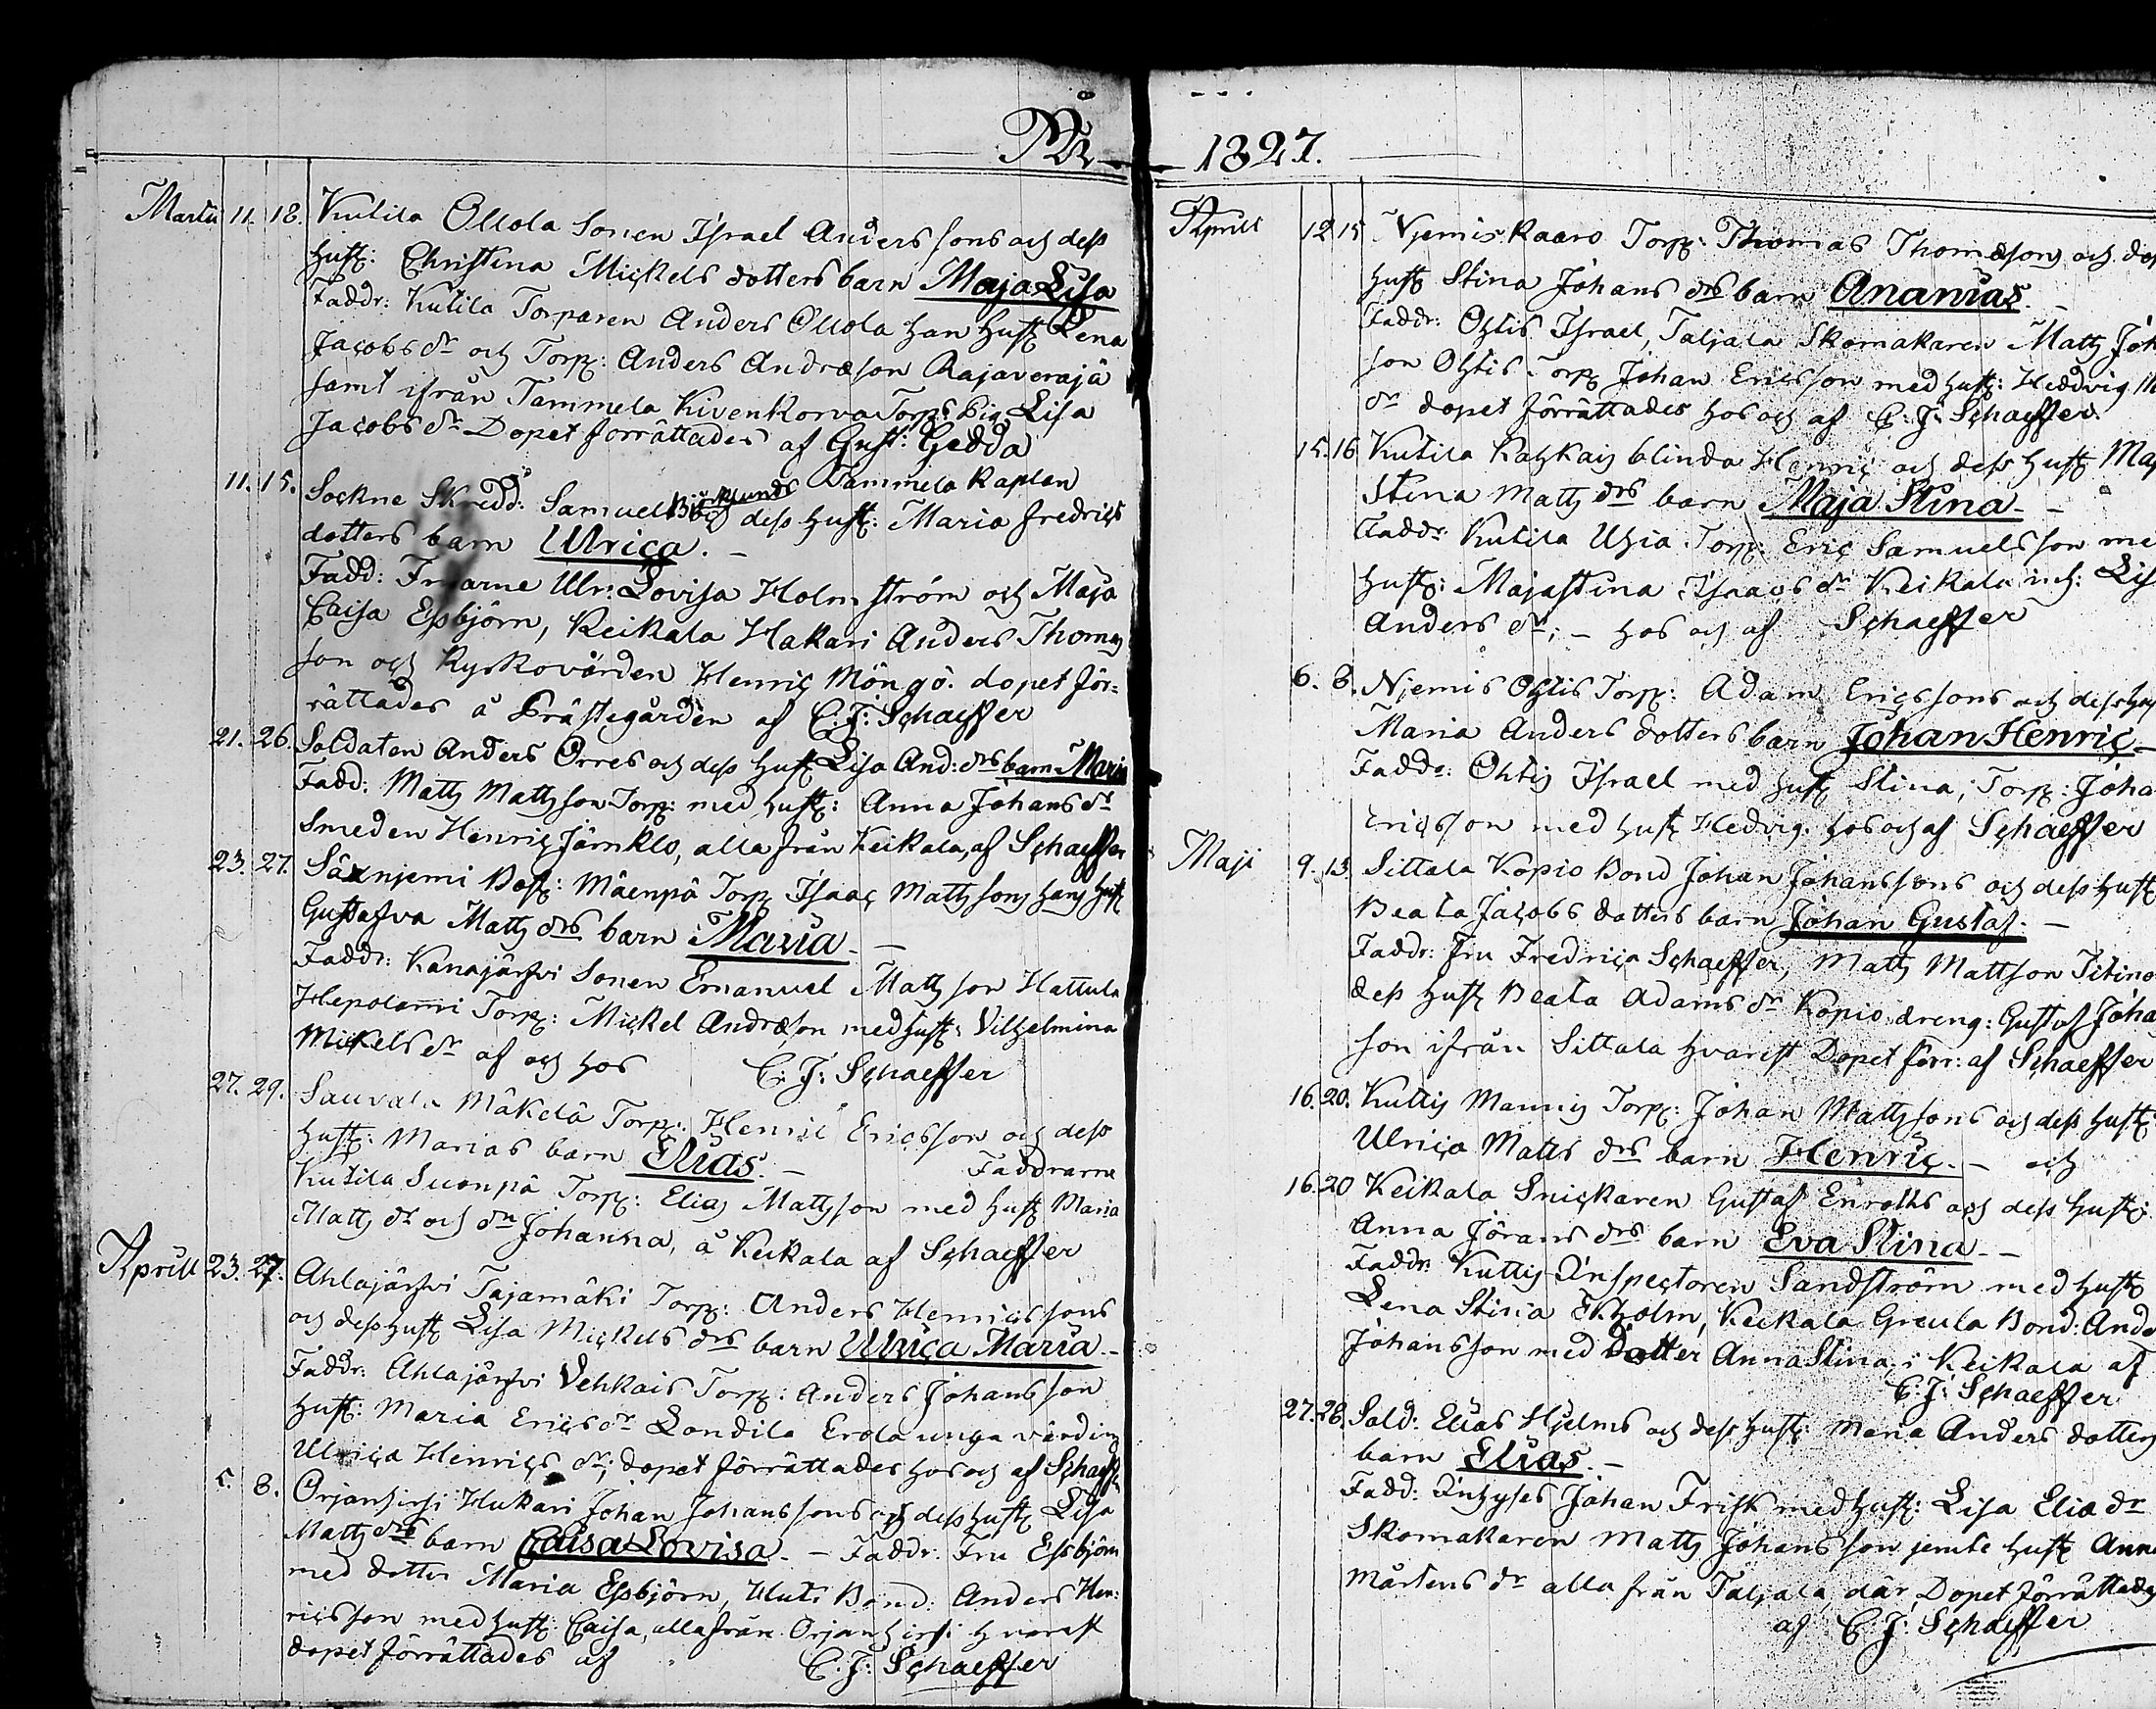 År
Martii 11. 18. Kutila Ollola Sonen Israel Anders sons och dess
hust: Christina Mickels dotters barn Maja Lisa
Faddr: Kutila Torparen Anders Ollola han hust Lena
Jacobs dr och Torp: Anders Andræson Rajaveraja
samt ifrån Tammela Kivenkorva Torps Pig Lisa
Jacobs dr Dopet förrättades af Gust: Gedda
Tammela Kaplan
11. 15. Sockne Skredd: Samuel Björklunds dess hust: Maria Fredrics
dotters barn Ulrica. -
Fadd: Fruarne Ulr: Lovisa Holmström och Maja
Caisa Essbjörn, Keikala Hakari Anders Thomas
son och Kyrkovärden Henric Möngö. dopet för-
rättades å Prästegården af C. J: Schaeffer
21. 26. Soldaten Anders Orres och dess hust Lisa And: drs barn Maria
Fadd: Matts Mattsson Torp: med hust: Anna Johans dr
Smeden Henric Järnklo, alla från Keikala, af Schaeffer
23. 27. Säxnjemi Bost: Mäenpä Torp Isaac Mattsons hans hust
Gustafva Matts drs barn Maria. -
Faddr: Kanajärfvi Sonen Emanuel Mattsson Hattula
Hepolami Torp: Mickel Andræson med hust: Vilhelmina
Mickels dr af och hos C: J: Schaeffer
27. 29. Sauvala Mäkelä Torp: Henric Ericsson och dess
hust: Marias barn Elias. - Faddrarne
Kutila Suonpä Torp: Elias Mattsson med hust Maria
Matts dr och dr Johanna, å Keikala af Schaeffer
Aprill 23. 27. Ahlajärfvi Tajamäki Torp: Anders Henricssons
och dess hust Lisa Mickels drs barn Ulrica Maria. -
Faddr: Ahlajärfvi Vehkais Torp: Anders Johansson
hust: Maria Erics dr Londila Erola unga värdin
Ulrica Henrics dr; dopet förrättades hos och af Schaeffer
5. 8. Orjanhirsi Hukari Johan Johanssons och dess hust Lisa
Matts drs barn Caisa Lovisa. - Faddr. Fru Essbjörn
med dotter Maria Essbjörn, Huti Bond: Anders Hen:
ricsson med hust: Caisa, alla från Orjanhirsi hvarest
dopet förrättades af C. J: Schaeffer
1827.
Aprill 12 15 Njemis Kaaro Torp: Thomas Thomæsons och des
hust Stina Johans drs barn Ananias. -
Faddr: Ohtis Israel, Taljala Skomakaren Matts Joh
son Ohtis Torp Johan Ericsson med hust: Hedvig M
dr dopet förrättades hos och af C. J. Schaeffer.
15. 16 Kutila Kahkais blinda Henric och dess hust Maj
Stina Matts drs barn Maja Stina. -
Faddr: Kutila Uhia Torp: Eric Samuelsson me
hust: Majastina Isaacs dr Keikala inh: Lis
Anders dr; - hos och af Schaeffer
6. 8. Njemis Ohtis Torp: Adam Ericssons och dess hus
Maria Anders dotters barn Johan Henric -
Faddr: Ohtis Israel med hust Stina, Torp: Joha
Ericsson med hust Hedvig. hos och af Schaeffer
Maji 9. 13. Sittala Kopio Bond Johan Johanssons och dess hust
Beata Jacobs dotters barn Johan Gustaf. -
Faddr: Fru Fredrica Schaeffer, Matts Mattson
dess hust Beata Adams dr Kopio dreng: Gustaf Joha
son ifrån Sittala hvarest Dopet förr: af Schaeffer
16. 20. Kuttis Mannis Torp: Johan Mattssons och dess hust:
Ulrica Matts drs barn Henric. - och
16. 20 Keikala Snickaren Gustaf Enroths och dess hust:
Anna Jörans drs barn Eva Stina. -
Faddr: Kuttis Inspectoren Sandström med hust
Lena Stina Ekholm, Keikala Greula Bond: Ande
Johansson med Dotter Anna Stina, i Keikala af
C: J: Schaeffer
27. 28. Sold: Elias Hjelms och dess hust: Maria Anders dotters
barn Elias. -
Fadd: Inhyses Johan Frisk med hust: Lisa Elia dr
Skomakaren Matts Johansson jemte hust Anna
Mårtens dr alla från Taljala, där Dopet förrättades
af C. J: Schaeffer